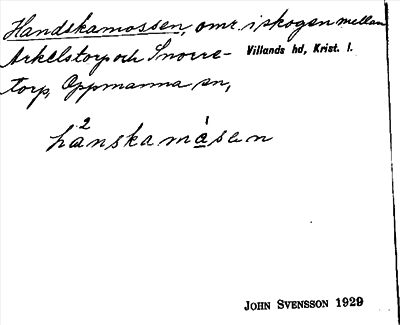 Handskamossen, omr. i skogen mellan
Arkelstorp och Snorre-
torp, Oppmanna sn,
Villands hd, Krist. l.
hanskamåsen
JOHN SVENSSON 1929